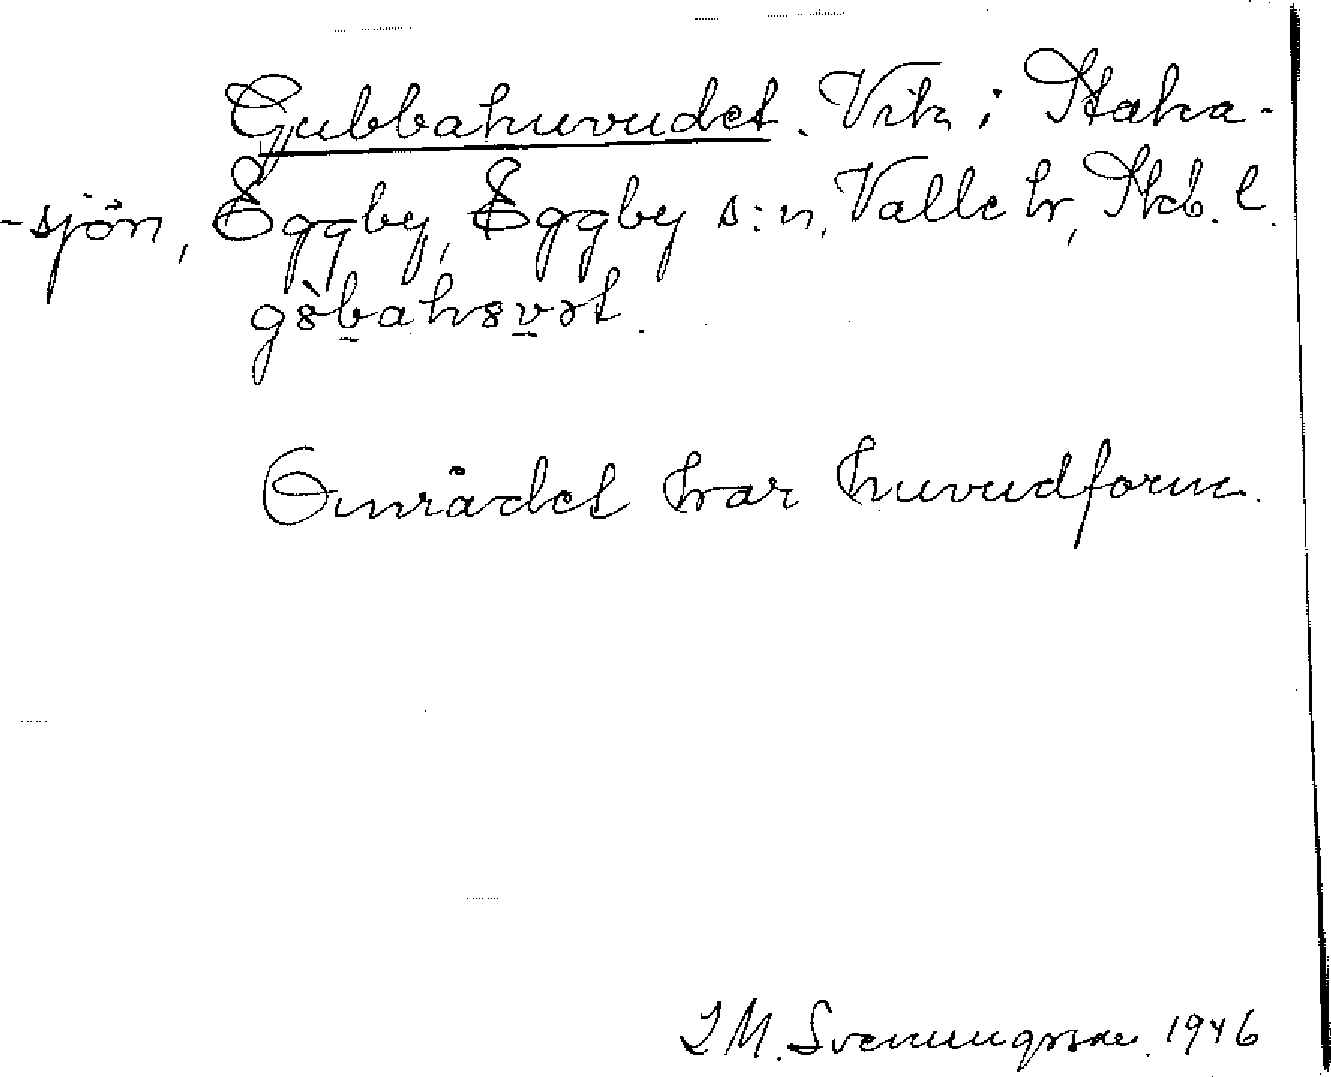 Gubbahuvudet. Vik i Staka-
-sjön, Eggby, Eggby s:n, Valle hr, Skb. l.
gòbahuvət.
Området har huvudform.
I M. Svenungsson. 1946